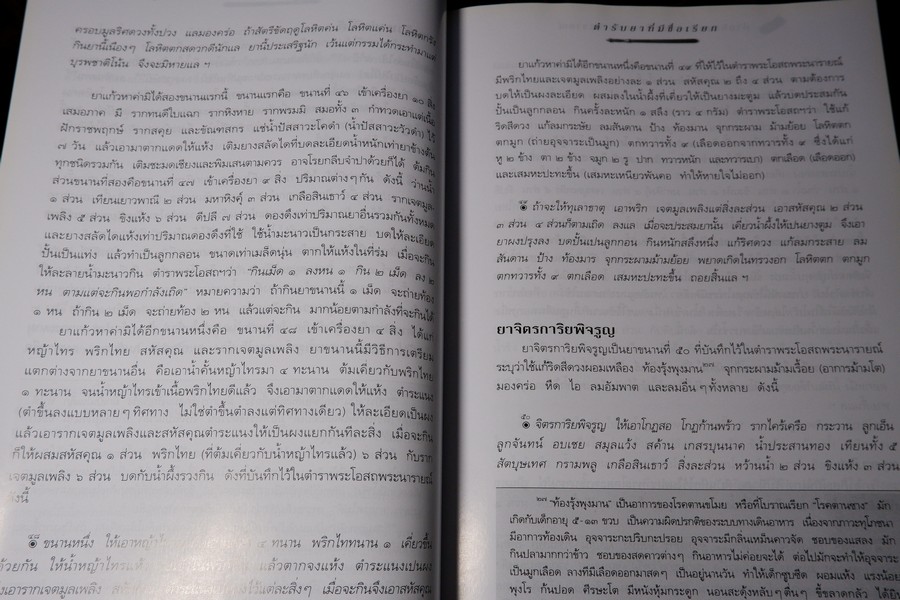 ครอบมูลริศดวงทั้งปวง แลมองคร่อ ถ้าสัตรีขัดฤดูโลหิตค่น โลหิตแค่น โลหิตกรัง
กินยานี้เนืองๆ โลหิตตกสดวกดีนักแล ยานี้ประเสริฐนัก เว้นแต่กรรมได้กระทำมาแต่
บุรพชาติโน้น จึงจะมิหายแล ฯ
ยาแก้วห้าค่ามิได้สองขนานแรกนี้ ขนานแรกคือ ขนานที่ ๔๖ เข้าเครื่องยา ๑๐ สิ่ง
เสมอภาค มี รากทนดีใบแฉก รากหิงหาย รากพรมมิ สมอทั้ง ๓ กำทวดเอาแต่เนื้อ
ฝักราชพฤกษ์ รากสคุย และขัณฑสกร แช่น้ำปัสสาวะโคดำ (น้ำปัสสาวะวัวดำ) ไว้
๗ วัน แล้วเอามาตากแดดให้แห้ง เติมยางสลัดไดที่บดละเอียดน้ำหนักเท่ายาข้างต้น
ทุกชนิดรวมกัน เติมชะมดเชียงและพิมเสนตามควร อาจโรยกลีบจำปาด้วยก็ได้ ต้มกิน
ส่วนขนานที่สองคือขนานที่ ๔๗ เข้าเครื่องยา ๙ สิ่ง ปริมาณต่างๆ กัน ดังนี้ ว่านน้ำ
๑ ส่วน เทียนเยาวพาณี ๒ ส่วน มหาหิงคุ์ ๓ ส่วน เกลือสินเธาว์ ๔ ส่วน รากเจตมูล
เพลิง ๕ ส่วน ขิงแห้ง ๖ ส่วน ดีปลี ๗ ส่วน ดองดึงเท่าปริมาณยาอื่นรวมกันทั้งหมด
และยางสลัดไดแห้งเท่าปริมาณดองดึงที่ใช้ ใช้น้ำมะนาวเป็นกระสาย บดให้ละเอียด
ปั้นเป็นแท่ง แล้วทำเป็นลูกกลอน ขนาดเท่าเมล็ดนุ่น ตากให้แห้งในที่ร่ม เมื่อจะกิน
ให้ละลายน้ำมะนาวกิน ตำราพระโอสถฯว่า "กินเม็ด ๑ ลงหน ๑ กิน ๒ เม็ด ลง ๒
หน ตามแต่จะกินพอกำลังเถิด" หมายความว่า ถ้ากินยาขนานนี้ ๑ เม็ด จะถ่ายท้อง
๑ หน ถ้ากิน ๒ เม็ด จะถ่ายท้อง ๒ หน แล้วแต่จะกิน มากน้อยตามกำลังที่จะกินได้
ยาแก้วห้าค่ามิได้อีกขนานหนึ่งคือ ขนานที่ ๔๘ เข้าเครื่องยา ๔ สิ่ง ได้แก่
หญ้าไทร พริกไทย สหัสคุณ และรากเจตมูลเพลิง ยาขนานนี้มีวิธีการเตรียม
แตกต่างจากยาขนานอื่น คือเอาน้ำคั้นหญ้าไทรมา ๔ ทะนาน ต้มเคี่ยวกับพริกไทย
๑ ทะนาน จนน้ำหญ้าไทรเข้าเนื้อพริกไทยดีแล้ว จึงเอามาตากแดดให้แห้ง ตำระแนง
(ตำขึ้นลงแบบหลายๆ ทิศทาง ไม่ใช่ตำขึ้นตำลงแต่ทิศทางเดียว) ให้ละเอียดเป็นผง
แล้วเอารากเจตมูลเพลิงและสหัสคุณตำระแนงให้เป็นผงแยกกันทีละสิ่ง เมื่อจะกิน
ก็ให้ผสมสหัสคุณ ๑ ส่วน พริกไทย (ที่ต้มเคี่ยวกับน้ำหญ้าไทรแล้ว) ๖ ส่วน กับราก
เจตมูลเพลิง ๖ ส่วน บดกับน้ำผึ้งรวงกิน ดังที่บันทึกไว้ในตำราพระโอสถพระนารายณ์
ดังนี้
ขนานหนึ่ง ให้เอาหญ้า ๔ ทนาน พริกไททนาน ๑ เคี่ยวขึ้น
ด้วยกัน ให้น้ำหญ้าไทรแห้ง แล้วตากจงแห้ง ตำระแนงเปนผง
เอารากเจตมูลเพลิง ไว้แต่ละสิ่งๆ เมื่อจะกินจึงเอาสหัสคุณ
ตำรับยาที่มีชื่อเรียก
ยาแก้วห้าค่ามิได้อีกขนานหนึ่งคือขนานที่ ๔๙ ที่ให้ไว้ในตำราพระโอสถพระนารายณ์
มีพริกไทยและเจตมูลเพลิงอย่างละ ๑ ส่วน สหัสคุณ ๒ ถึง ๔ ส่วน ตามต้องการ
บดให้เป็นผงละเอียด ผสมลงในน้ำผึ้งที่เคี่ยวให้เป็นยางมะตูม แล้วบดประสมกัน
ปั้นเป็นลูกกลอน กินครั้งละหนัก ๑ สลึง (ราว ๔ กรัม) ตำราพระโอสถฯว่า ใช้แก้
ริดสีดวง แก้ลมกระษัย ลมสันดาน ป้าง ท้องมาน จุกกระผาม ม้ามย้อย โลหิตตก
ตกมูก (ถ่ายอุจจาระเป็นมูก) ตกทวารทั้ง ๙ (เลือดออกจากทวารทั้ง ๙ ซึ่งได้แก่
หู ๒ ข้าง ตา ๒ ข้าง จมูก ๒ รู ปาก ทวารหนัก และทวารเบา) ตกเลือด (เลือดออก)
และเสมหะปะทะขึ้น (เสมหะเหนียวพันคอ ทำให้หายใจไม่ออก)
ถ้าจะให้ทุเลาธาตุ เอาพริก เจตมูลเพลิงแต่สิ่งละส่วน เอาสหัสคุณ ๒ ส่วน
๓ ส่วน ๔ ส่วนก็ตามเถิด ลงแล เมื่อจะประสมยานั้น เคี่ยวน้ำผึ้งให้เปนยางตูม จึงเอา
ยาผงปรุงลง บดปั้นเปนลูกกลอน กินหนักสลึงหนึ่ง แก้ริศดวง แก้ลมกระสาย ลม
สันดาน ป้าง ท้องมาร จุกกระผามม้ามย้อย พยาดเกิดในทรวงอก โลหิตตก ตกมูก
ตกทวารทั้ง ๙ ตกเลือด เสมหะปะทะขึ้น ถอยสิ้นแล ฯ
ยาจิตรการิยพิจรูญ
ยาจิตรการิยพิจรูญเป็นยาขนานที่ ๕๐ ที่บันทึกไว้ในตำราพระโอสถพระนารายณ์
ระบุว่าใช้แก้ริดสีดวงผอมเหลือง ท้องรุ้งพุงมาน๒๗ จุกกระผามม้ามเรื้อย (อาการม้ามโต)
มองคร่อ หืด ไอ ลมอัมพาต และลมอื่นๆ ทั้งหลาย ดังนี้
จิตรการิยพิจรูญ ให้เอาโกฏสอ โกฏก้านพร้าว รากไคร้เครือ กระวาน ลูกเอ็น
ลูกจันทน์ อบเชย สมุลแว้ง สค้าน เกสรบุนนาค น้ำประสานทอง เทียนทั้ง ๕
สัตบุษเทศ กรามพลู เกลือสินเธาว์ สิ่งละส่วน หว้านน้ำ ๒ ส่วน ขิงแห้ง ๓ ส่วน
๒๗ "ท้องรุ้งพุงมาน" เป็นอาการของโรคตานขโมย หรือที่โบราณเรียก "โรคตานซาง" มัก
เกิดกับเด็กอายุ ๕-๑๓ ขวบ เป็นความผิดปรกติของระบบทางเดินอาหาร เนื่องจากภาวะทุโภชนา
มีอาการท้องเดิน อุจจาระกะปริบกะปรอย อุจจาระมีกลิ่นเหม็นคาวจัด ชอบของแสลง มัก
กินปลามากกว่าข้าว ชอบของสดคาวต่างๆ กินอาหารไม่ค่อยจะได้ ต่อไปมักจะทำให้อุจจาระ
เป็นมูกเลือด ลางทีมีเลือดออกมาสดๆ เป็นอยู่นานวัน ทำให้เด็กซูบซีด ผอมแห้ง แรงน้อย
พุงโร ก้นปอด ศีรษะโต มีหนังหุ้มกระดูก นอนสะดุ้งหลับๆ ตื่นๆ ขี้ขลาดกลัว